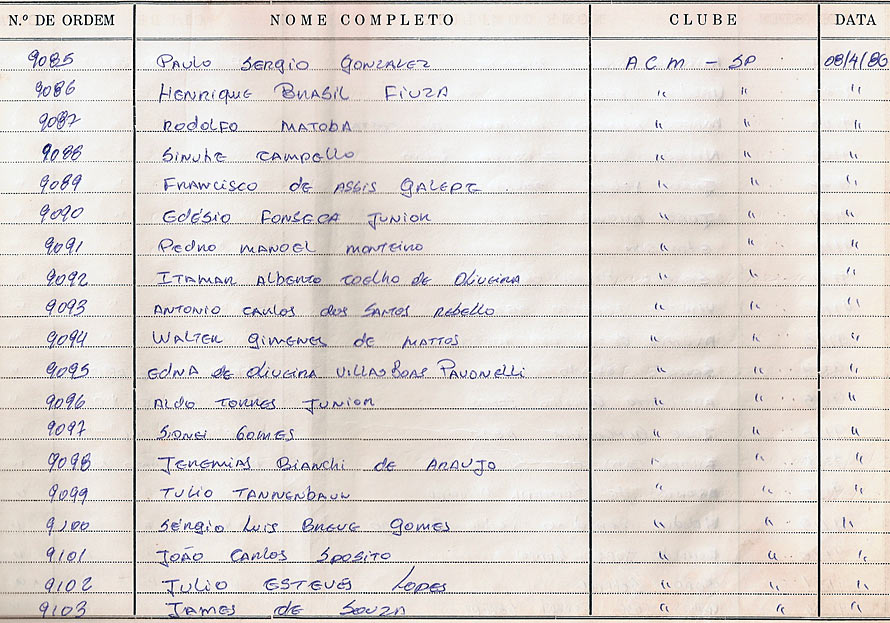 N.º DE ORDEM NOME COMPLETO CLUBE DATA
9085 PAULO SERGIO GONZALEZ ACM - SP 08/4/86
9086 HENRIQUE BRASIL FIUZA " " "
9087 RODOLFO MATOBA " " "
9088 SINUHE CAMPELLO " " "
9089 FRANCISCO DE ASSIS GALEPE " " "
9090 EDÉSIO FONSECA JUNIOR " " "
9091 PEDRO MANOEL MONTEIRO " " "
9092 ITAMAR ALBERTO COELHO DE OLIVEIRA " " "
9093 ANTONIO CARLOS DOS SANTOS REBELLO " " "
9094 WALTER GIMENES DE MATTOS " " "
9095 EDNA DE OLIVEIRA VILLAS BOAS PAVONELLI " " "
9096 ALDO TORRES JUNIOR " " "
9097 SIDNEI GOMES " " "
9098 JEREMIAS BIANCHI DE ARAUJO " " "
9099 TULIO TANNENBAUM " " "
9100 SÉRGIO LUIS BREVE GOMES " " "
9101 JOÃO CARLOS SPOSITO " " "
9102 JULIO ESTEVES LOPES " " "
9103 JAMES DE SOUZA " " "